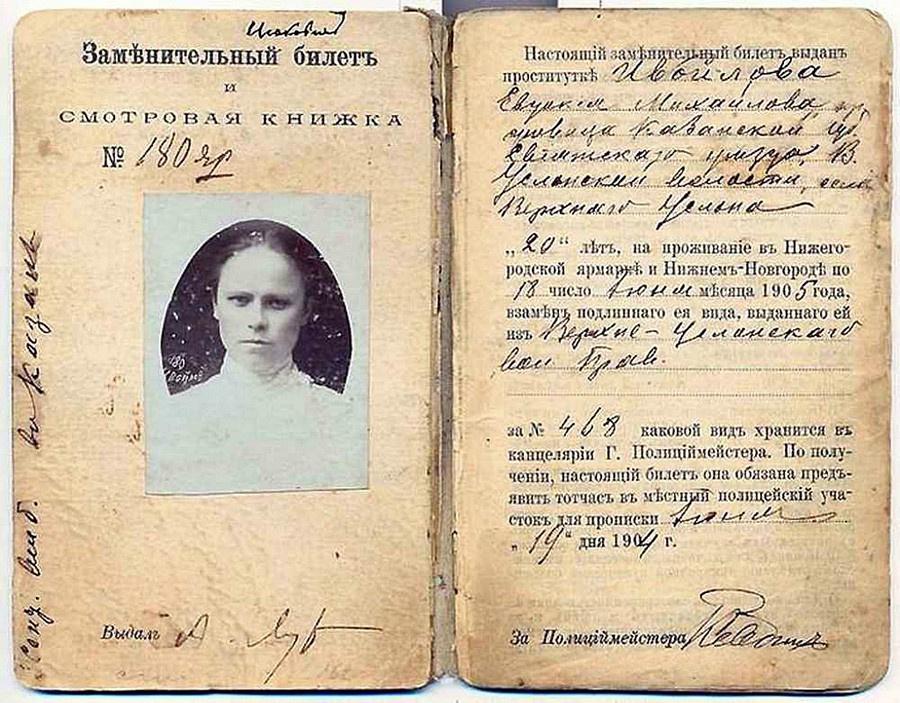 Замѣнительный билетъ
и
СМОТРОВАЯ КНИЖКА
№ 180 яр
180
Выдалъ А.
въ Казань
Настоящій замѣнительный билетъ выданъ
проституткѣ
Михайлова
Казанской губ.
уѣзда, В.
Услонской волости, села
Верхняго Услона
„20“ лѣтъ, на проживаніе въ Нижего-
родской ярмаркѣ и Нижнемъ-Новгородѣ по
18 число Іюня мѣсяца 1905 года,
взамѣнъ подлиннаго ея вида, выданнаго ей
изъ Верхне-Услонскаго
вол. Прав.
за № 468 каковой видъ хранится въ
канцеляріи Г. Полиціймейстера. По полу-
ченіи, настоящій билетъ она обязана предъ-
явить тотчасъ въ мѣстный полицейскій уча-
стокъ для прописки Іюня
„19“ дня 1904 г.
За Полиціймейстера